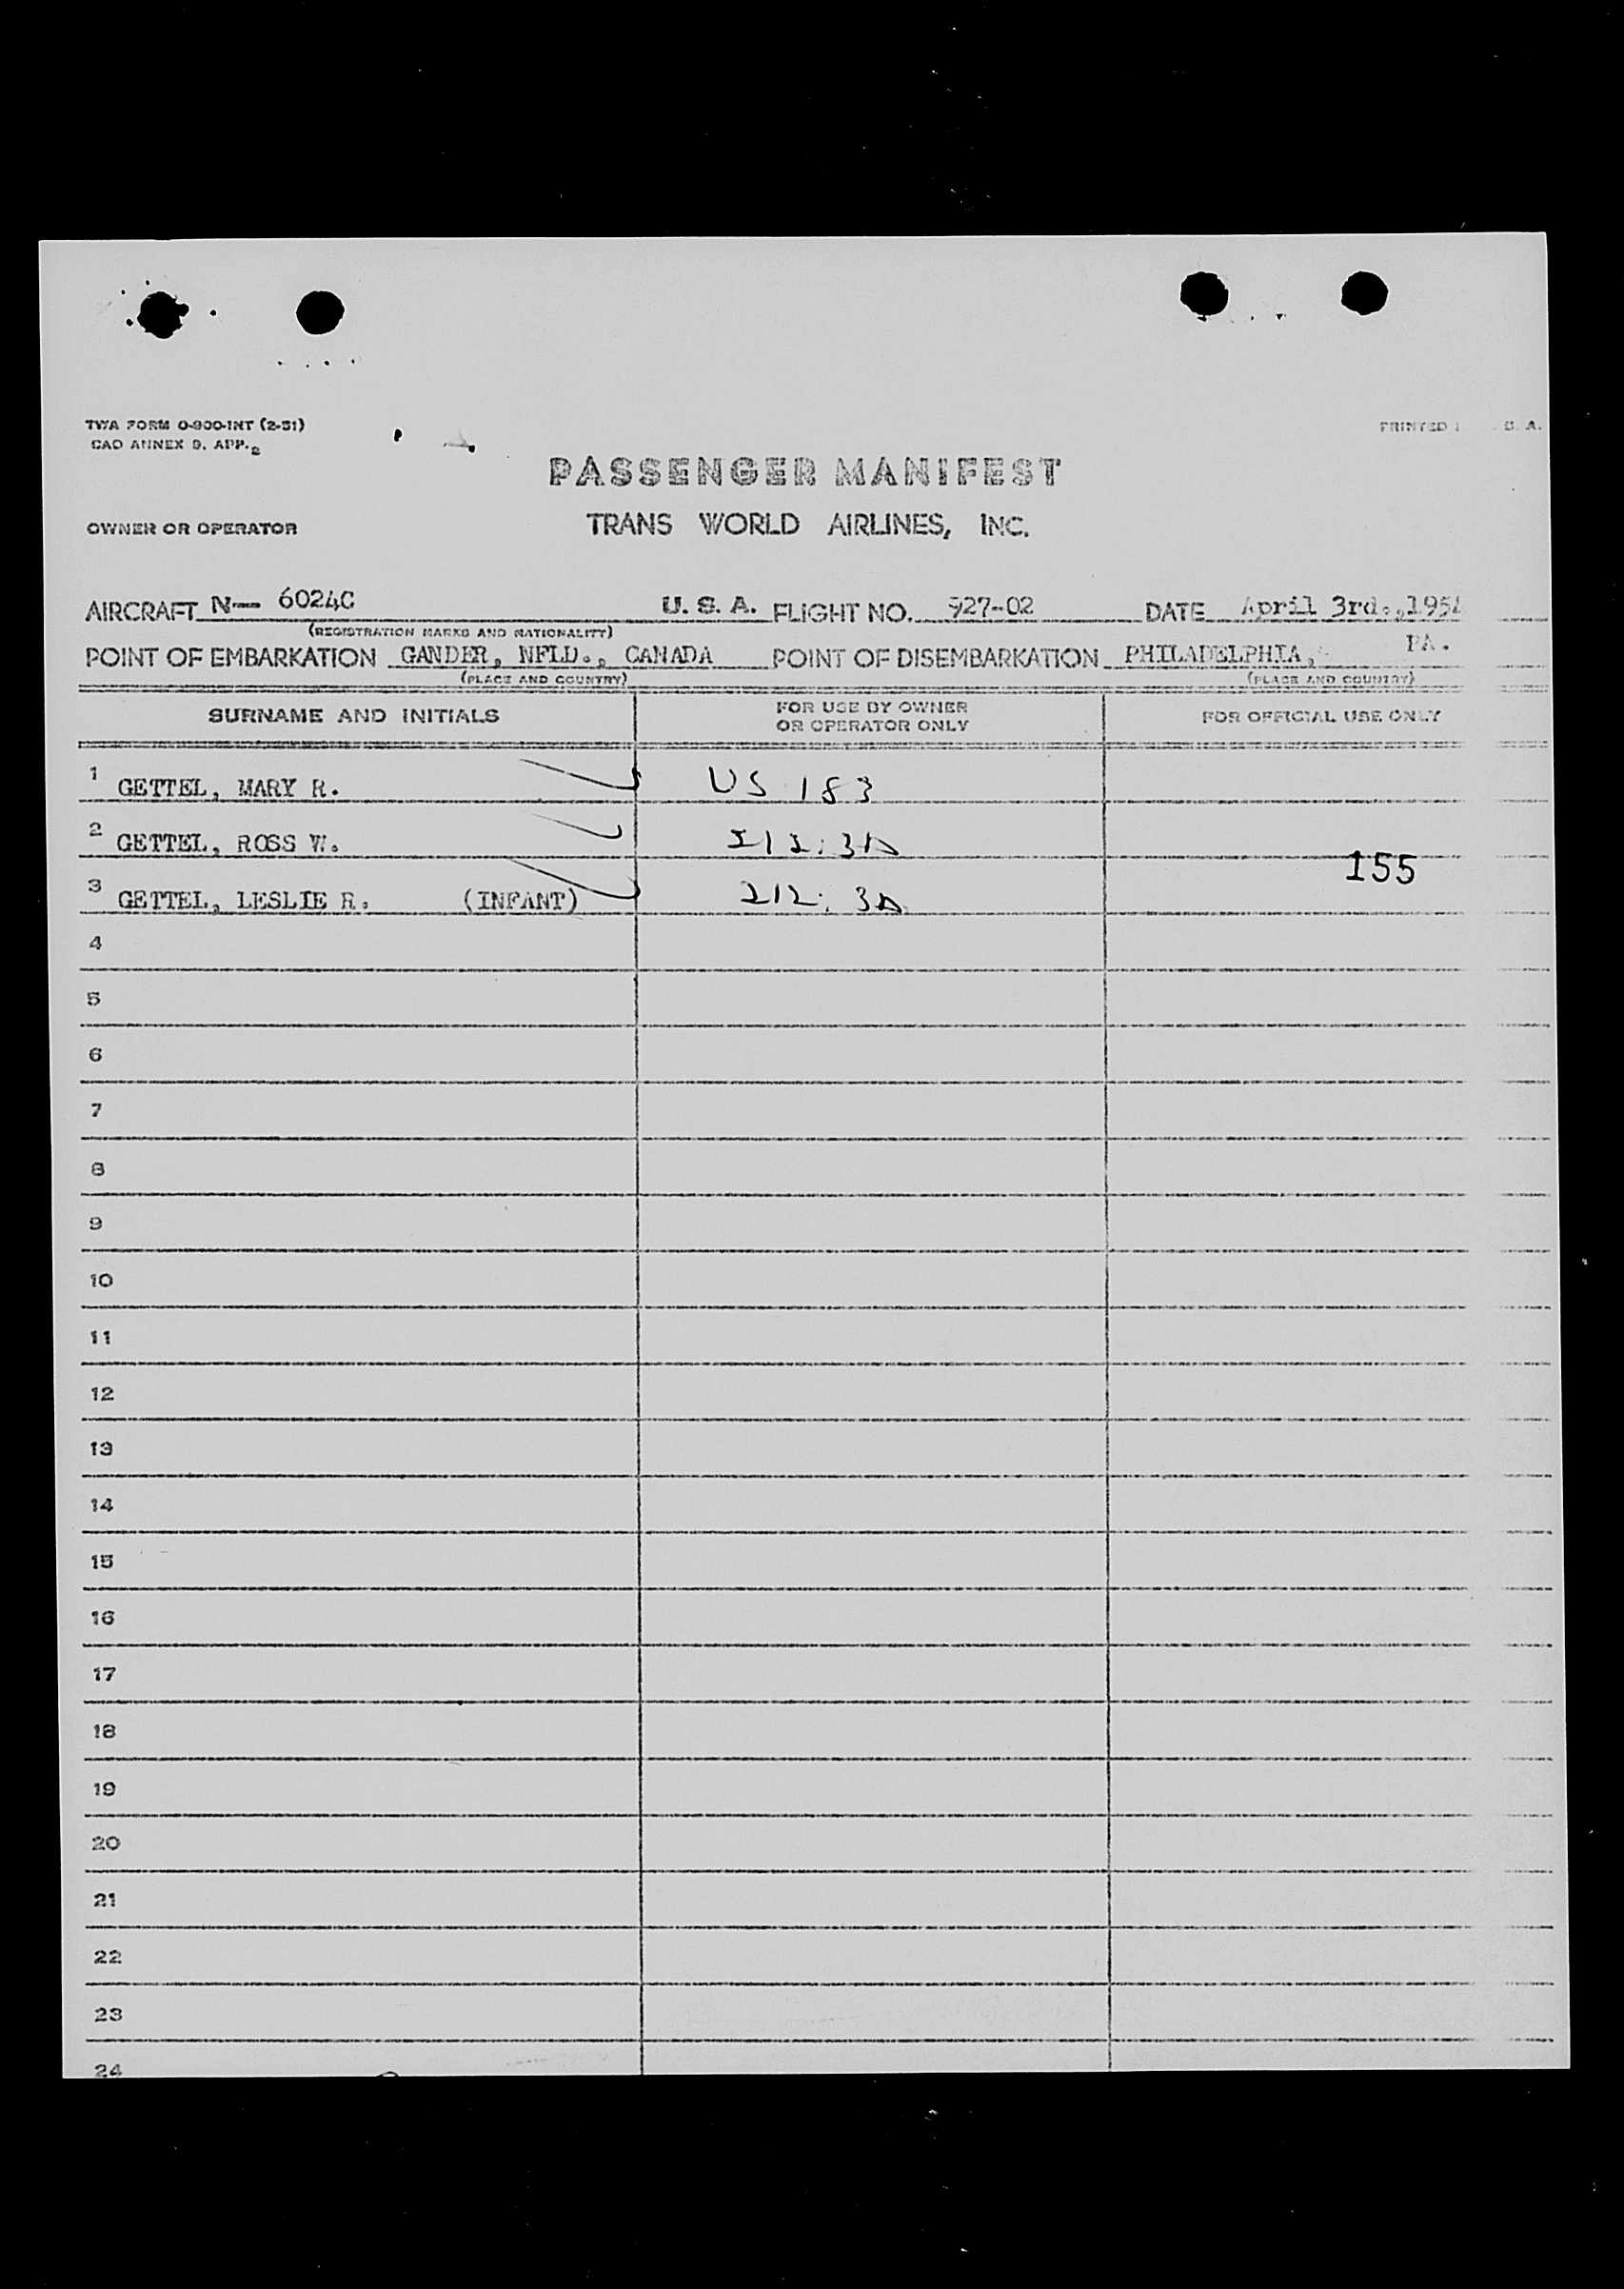 TWA FORM O-900-INT (2-51)
CAO ANNEX 9, APP. 2
PRINTED
S. A.
PASSENGER MANIFEST
OWNER OR OPERATOR
TRANS WORLD AIRLINES, INC.
AIRCRAFT N— 6024C U. S. A. FLIGHT NO. 927-02 DATE April 3rd.,195
(REGISTRATION MARKS AND NATIONALITY)
POINT OF EMBARKATION GANDER, NFLD., CANADA POINT OF DISEMBARKATION PHILADELPHIA, PA.
(PLACE AND COUNTRY) (PLACE AND COUNTRY)
SURNAME AND INITIALS FOR USE BY OWNER OR OPERATOR ONLY FOR OFFICIAL USE ONLY
1 GETTEL, MARY R. US 183
2 GETTEL, ROSS W.
155
3 GETTEL, LESLIE R. (INFANT)
4
5
6
7
8
9
10
11
12
13
14
15
16
17
18
19
20
21
22
23
24